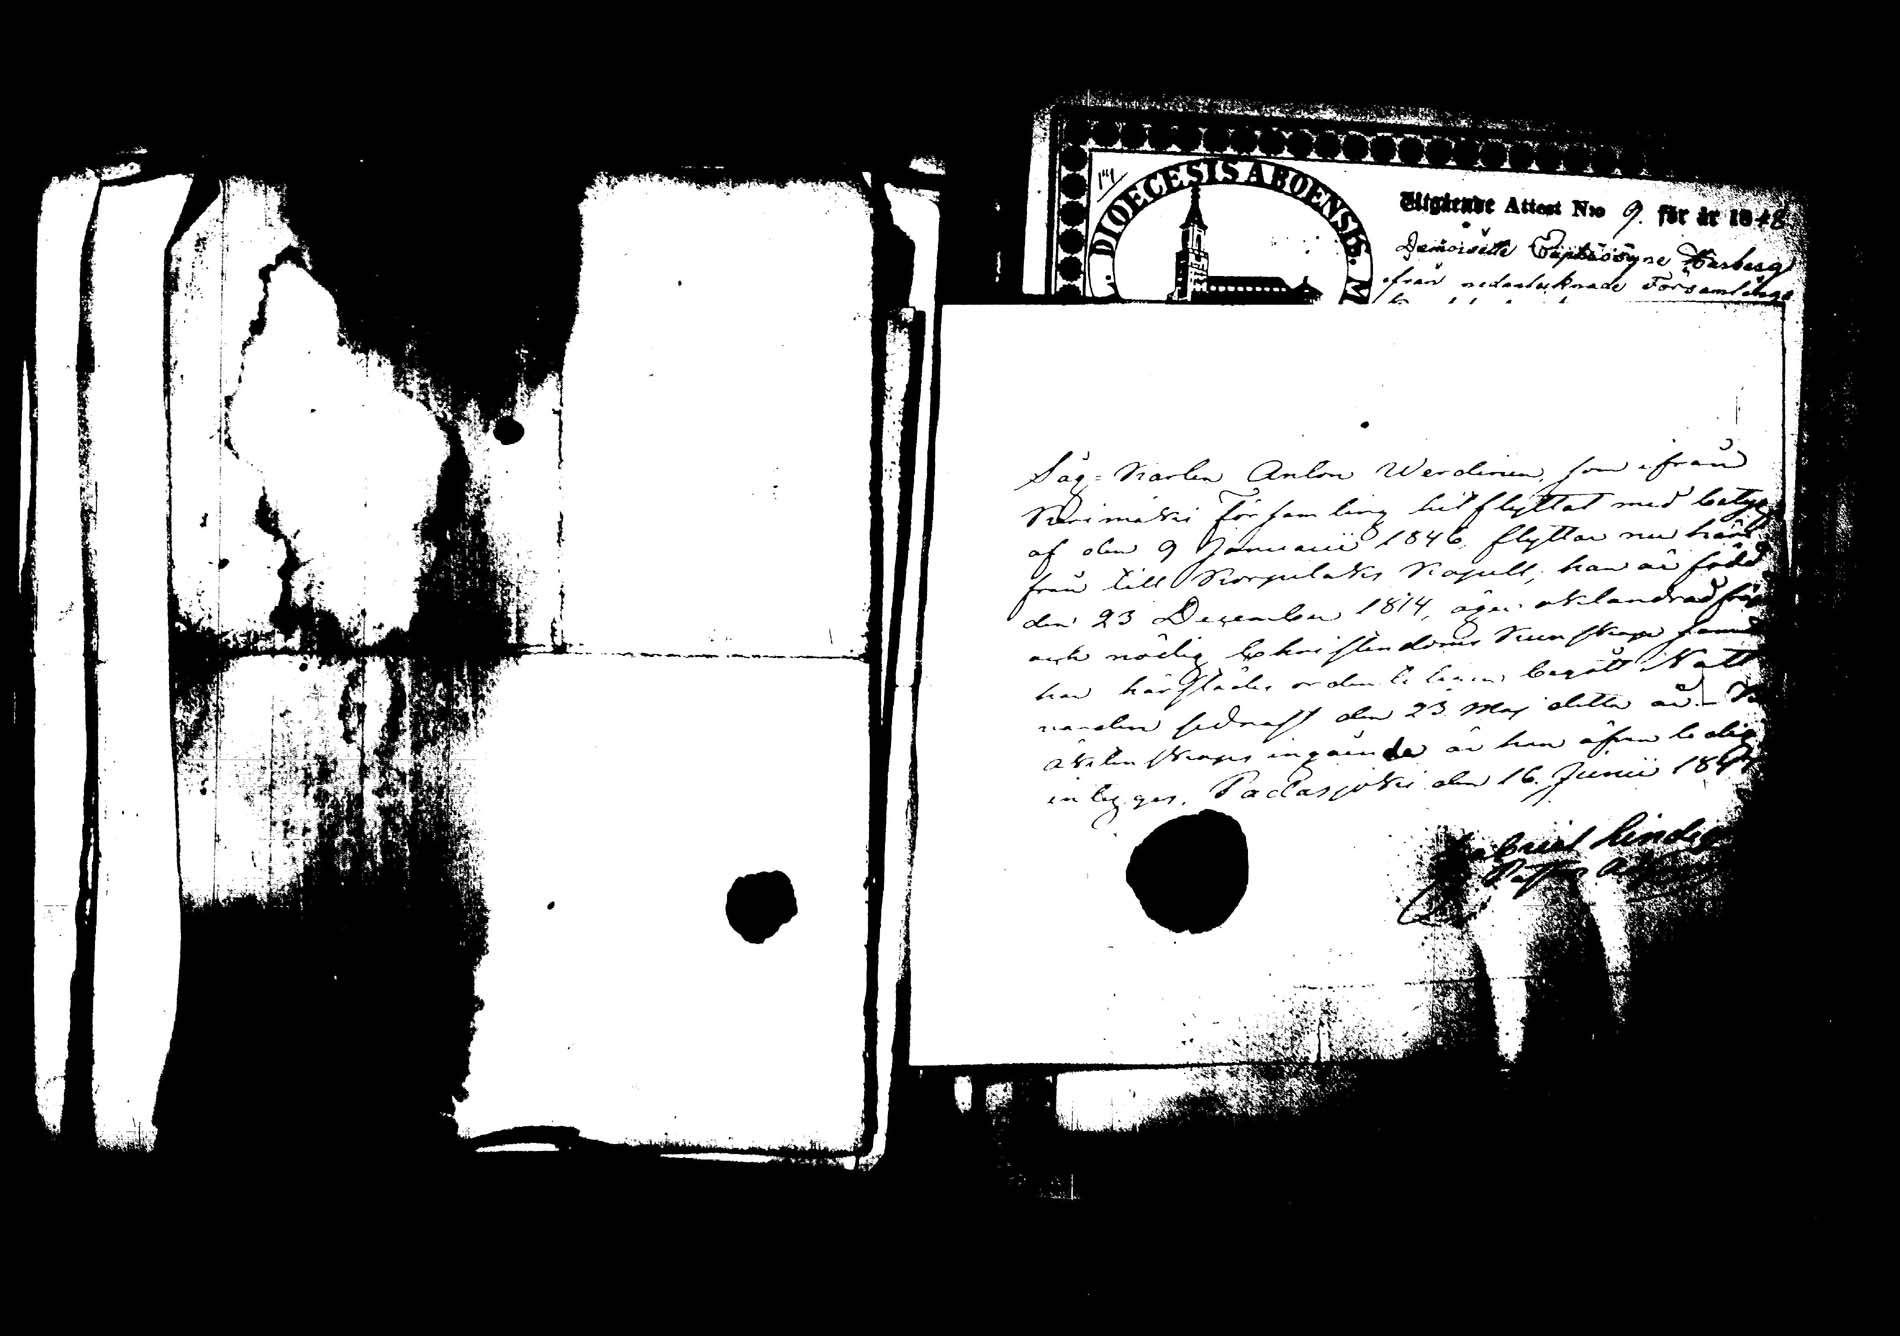 DIOECESIS ABOENSIS. M
Utgående Attest N:o 9. för år 1848
Demoiselle Euphrosyne
ifrån nedantecknade Församlings
Såg=Karlen Anton Werdinen, som ifrån
Kerimäki Församling hit flyttat med betyg
af den 9 Januarii 1846, flyttar nu här
från till Korpilaks Kapell, han är född
den 23 December 1814, äger oklandrad frägd
och nödig Christendoms Kunskap samt
har härstädes ordentligen begått Natt
varden sednast den 23 Maj detta år.
äktenskaps ingående är han äfven ledig
intygas, Padasjoki den 16 Junii 184
Gabriel